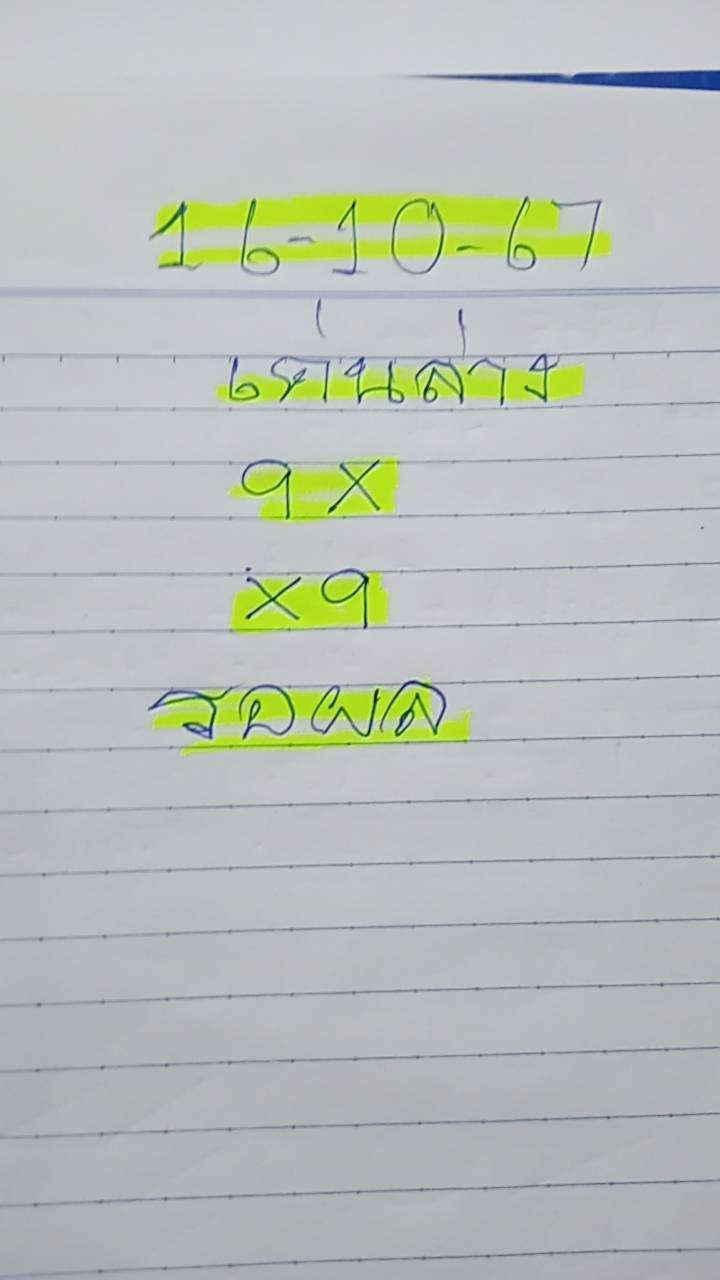 16-10-67
เด่นล่าง
9X
X9
รอผล